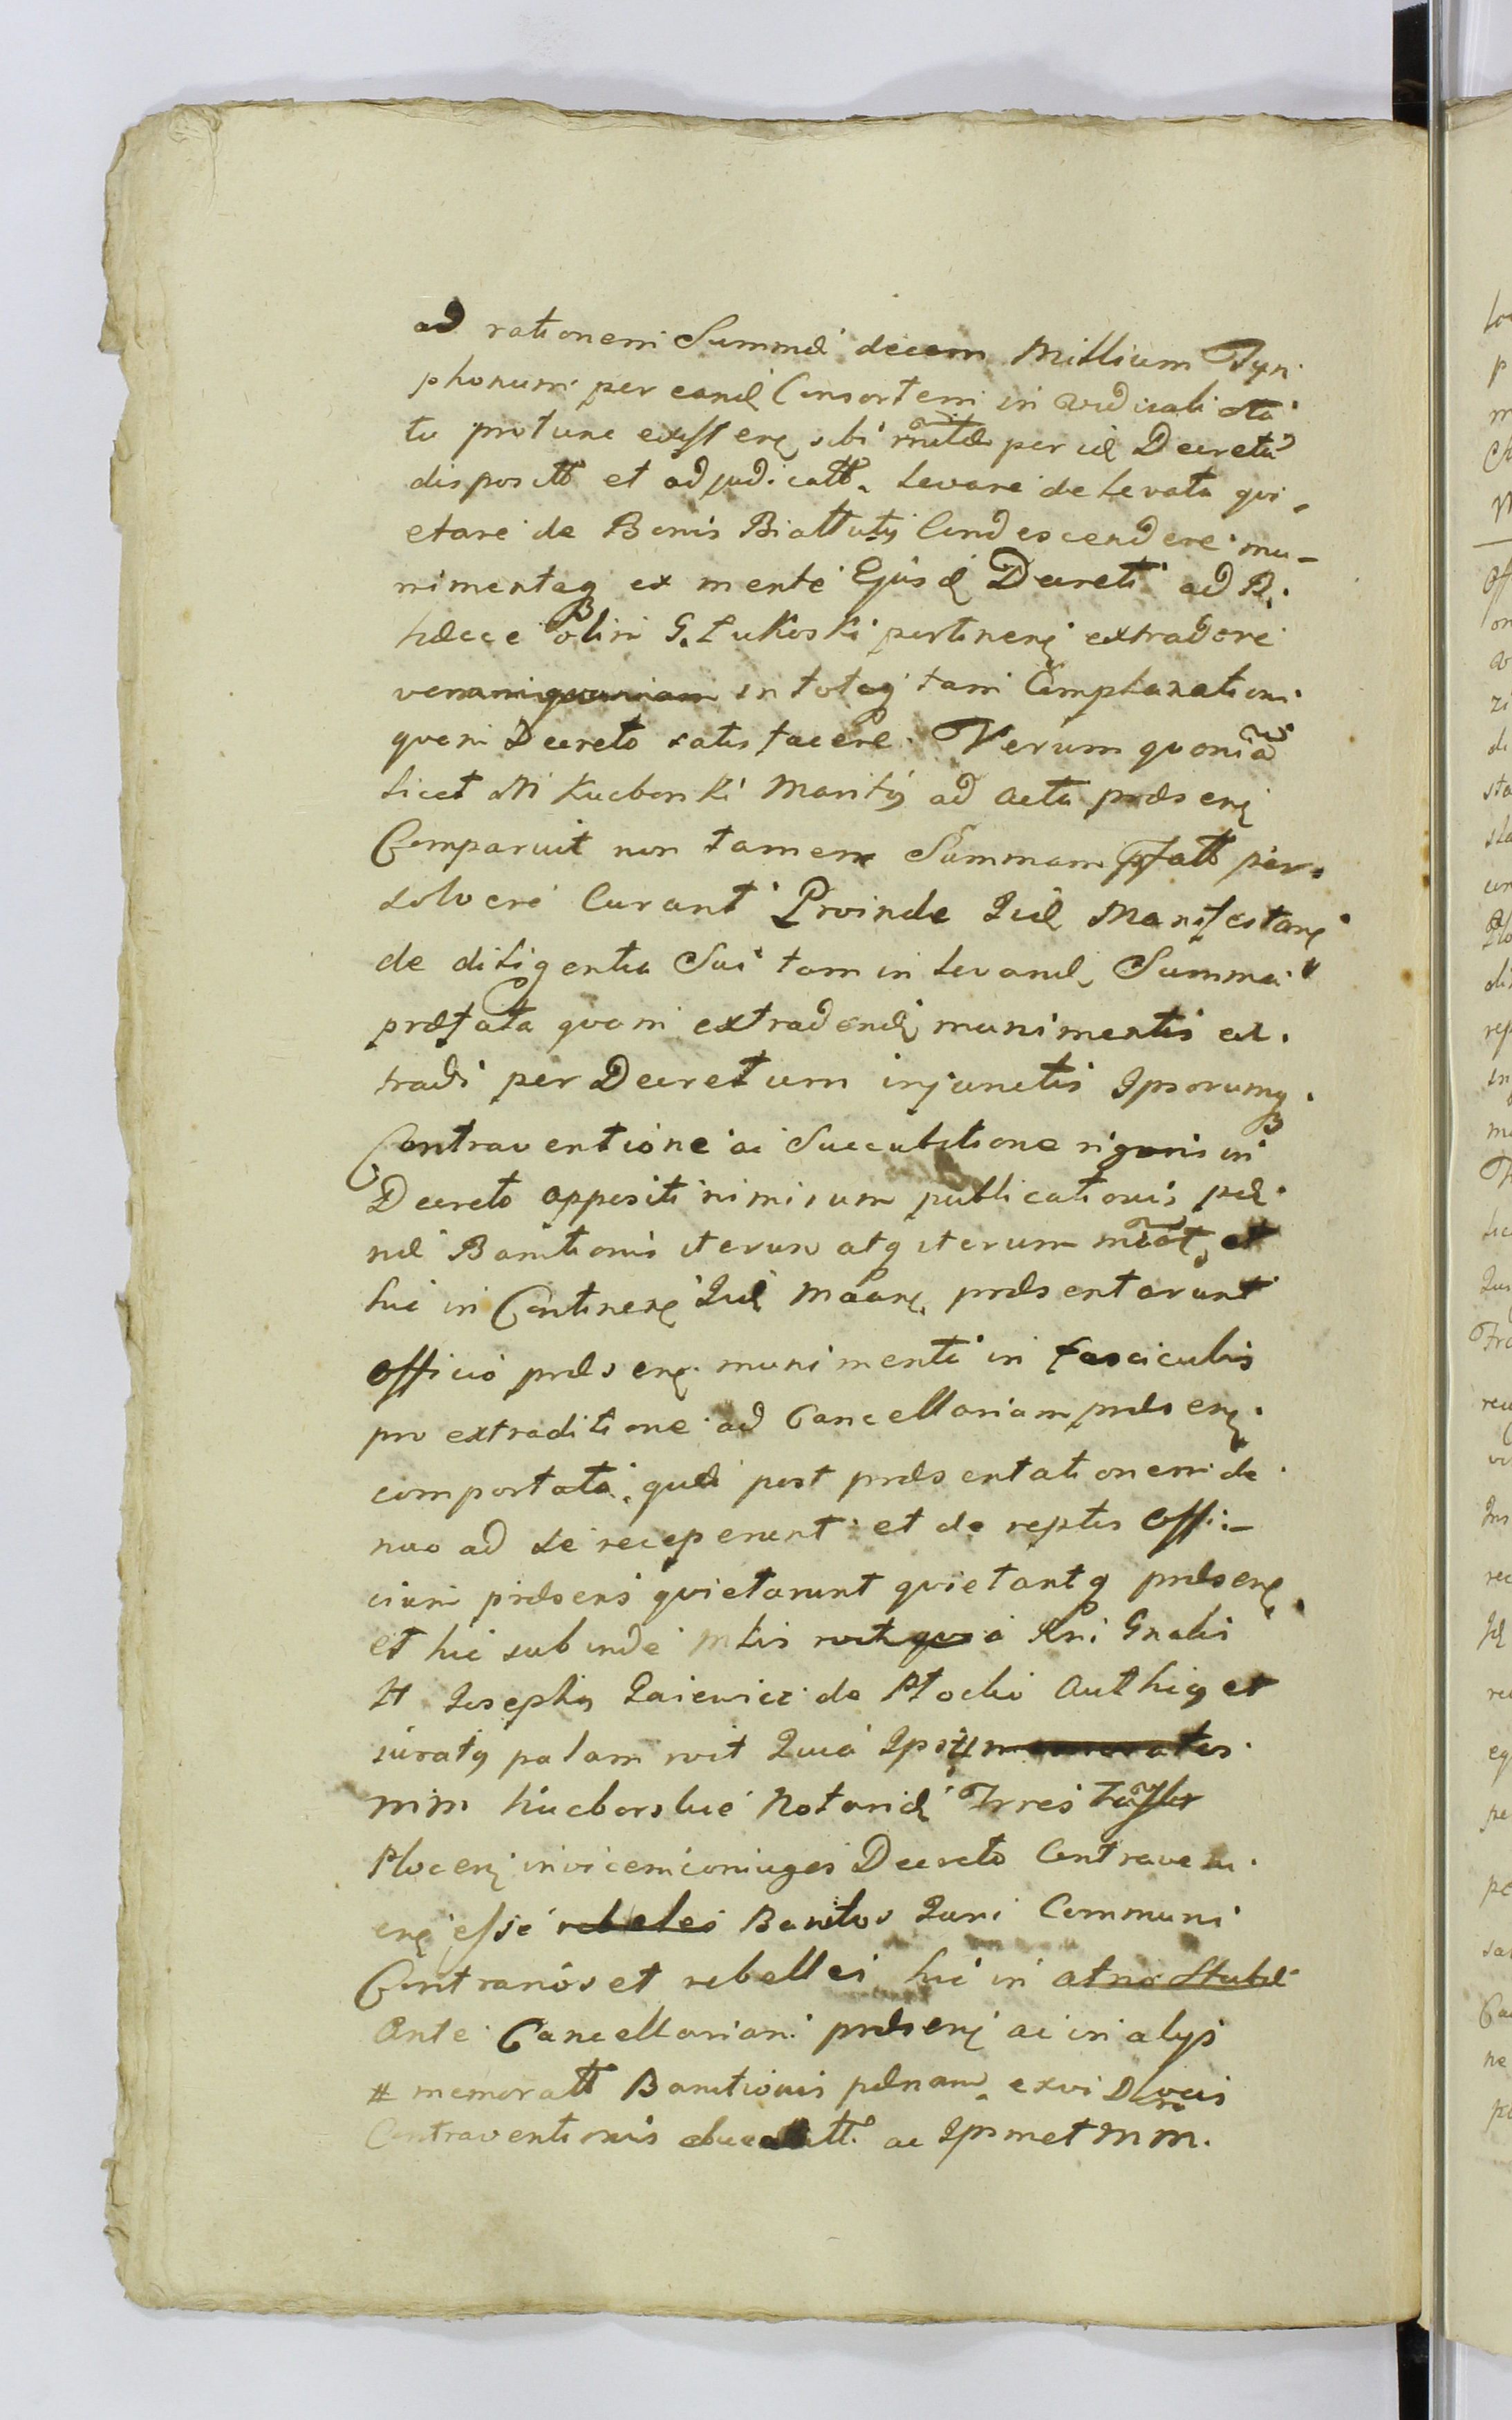 ad rationem Summæ decem Millium Tyn
phonum per eand Consortem in viduali sta
tu protunc existen sibi mutæ per id Decretu
disposit et adjudicatt. levare de levata qvi,
etare de Bonis Biattuty Condescendere mu-
nimentaq ex mente Ejusd Decreti ad B.
hæcce olim G. Łukoski pertinen extradere
in totoq tam Complanationi
qvam Decreto satisfacere. Verum qvonia
licet M Kucborski Maritus ad acta præsen
Comparuit non tamen Summam pfatt per,
solvere Curant Proinde Iid Manifestan
de diligentia Sui tam in levand Summa
præfata qvam extradend munimentis ex.
tradi per Decretum injunctis Ipsorumq.
Contraventione ac Succubitione rigoris in
Decreto appositi nimirum publicationis pæ.
næ Banitionis iterum atq iterum
hic in Continen Iid Maan. præsentarunt
Officio præsen. munimenti in fasciculis
pro extraditione ad Cancellariam præsen.
comportata, quæ post præsentationem de
nuo ad se receperunt et de reptis Offi-
cium præsens qvietarunt qvietantq præsen
et hic subinde Mlis Rni Gnalis
H Josephus Zaiewicz de Plocko Authiq et
iuratq palam rvit Quia Ipsi
mm Kucborskie Notarid Trres
Plocen invicem coniuges Decreto Contraven.
en esse rebeles Banitos Iuri Communi
Contrarios et rebelles hic in
Ante Cancellariam præsen ac in alys
# memoratt Banitionis pænam ex vi
Contraventionis ac Ipsmet mm.